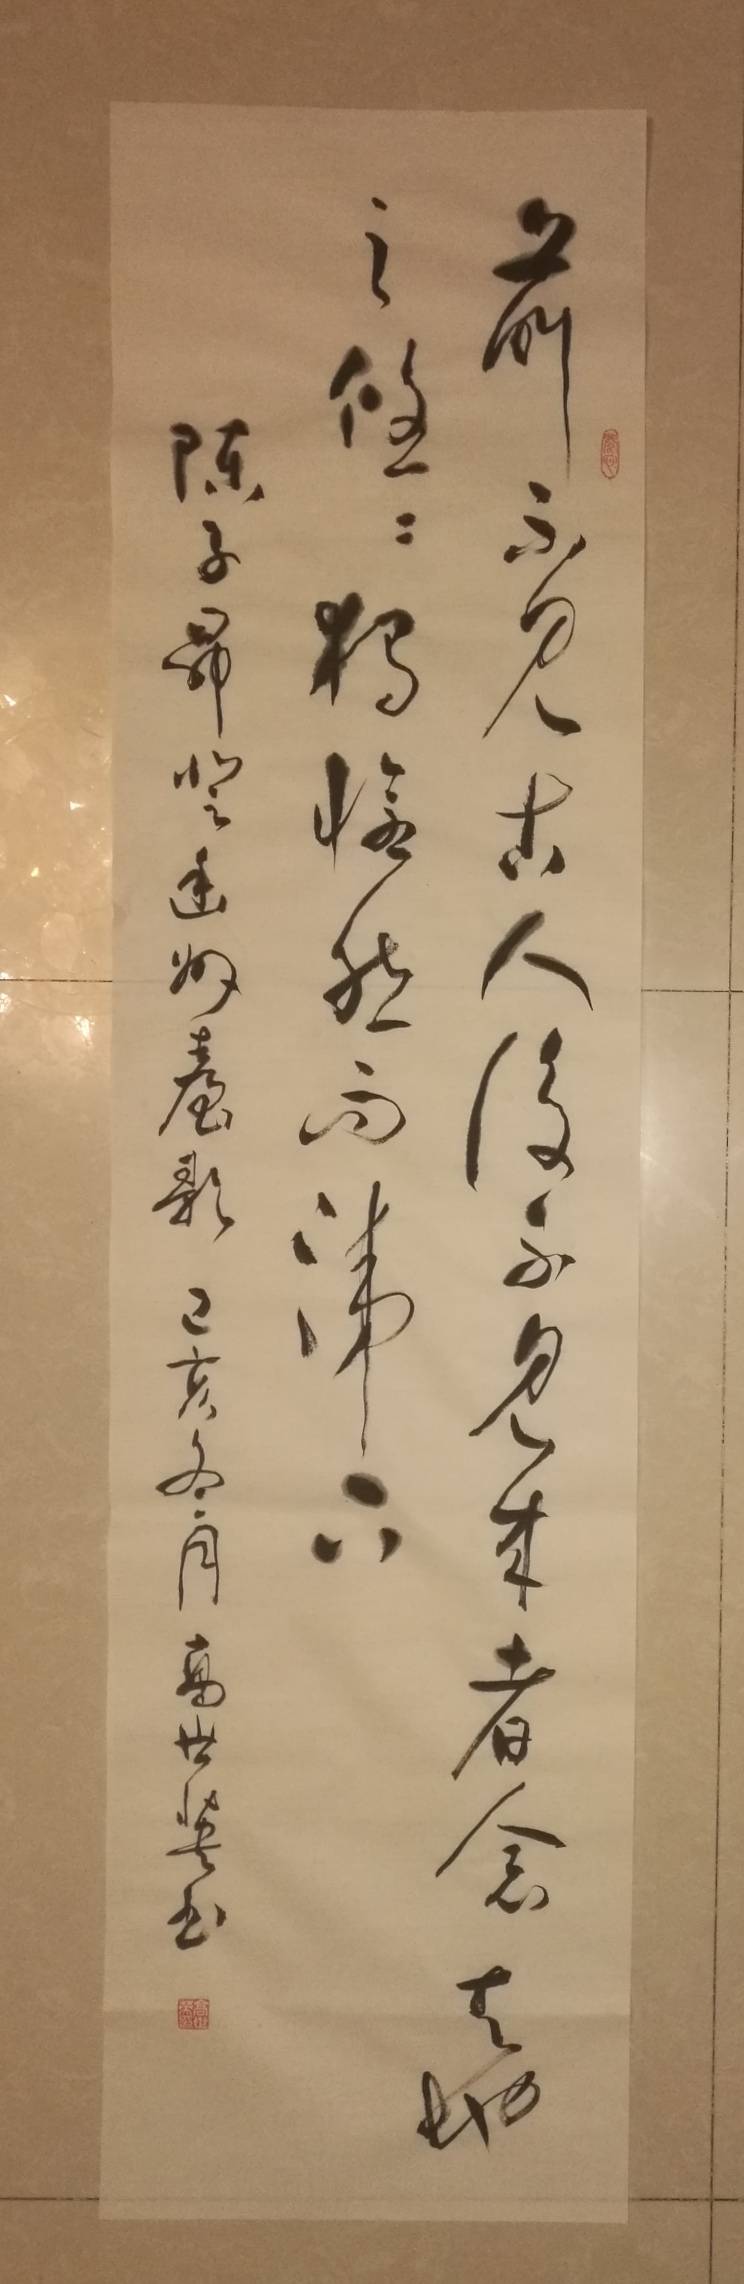 前不见古人后不见来者念天地
之悠悠独怆然而涕下
陈子昂登幽州臺歌 己亥冬月 高世英书